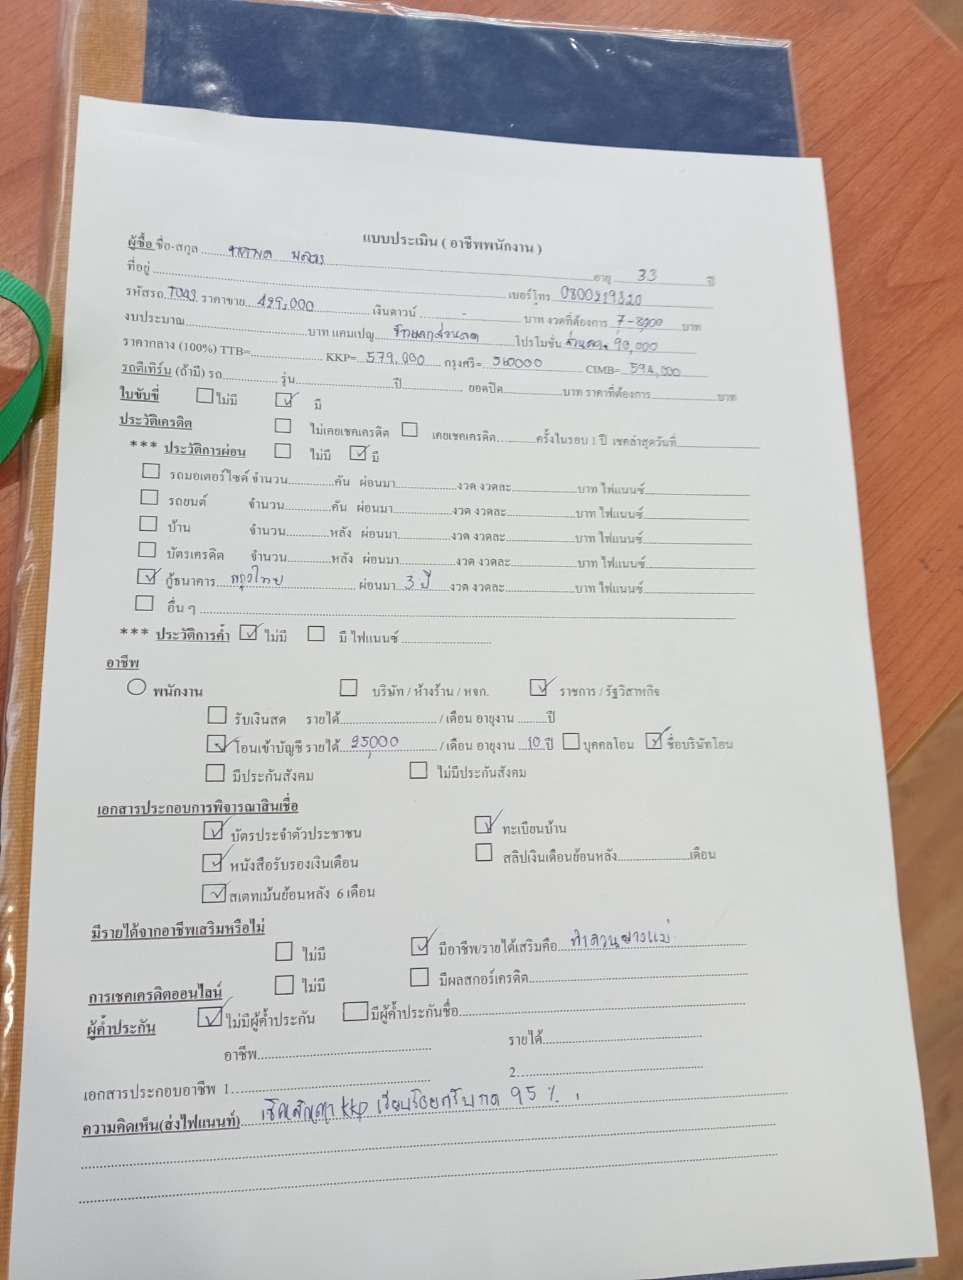 แบบประเมิน ( อาชีพพนักงาน )
ผู้ซื้อ ชื่อ-สกุล ........ อายุ 33 ปี
ที่อยู่ ........ เบอร์โทร 0800219320
รหัสรถ T043 ราคาขาย 429,000 เงินดาวน์ - บาท งวดที่ต้องการ 7-8000 บาท
งบประมาณ ........ บาท แคมเปญ ........ โปรโมชั่น ส่วนลด 90,000
ราคากลาง (100%) TTB= ........ KKP= 579,000 กรุงศรี= 560000 CIMB= 594,000
รถตีเทิร์น (ถ้ามี) รถ ........ รุ่น ........ ปี ........ ยอดปิด ........ บาท ราคาที่ต้องการ ........ บาท
ใบขับขี่ ไม่มี มี
ประวัติเครดิต ไม่เคยเชคเครดิต เคยเชคเครดิต ........ ครั้งในรอบ 1 ปี เชคล่าสุดวันที่ ........
*** ประวัติการผ่อน ไม่มี มี
รถมอเตอร์ไซค์ จำนวน ........ คัน ผ่อนมา ........ งวด งวดละ ........ บาท ไฟแนนซ์ ........
รถยนต์ จำนวน ........ คัน ผ่อนมา ........ งวด งวดละ ........ บาท ไฟแนนซ์ ........
บ้าน จำนวน ........ หลัง ผ่อนมา ........ งวด งวดละ ........ บาท ไฟแนนซ์ ........
บัตรเครดิต จำนวน ........ หลัง ผ่อนมา ........ งวด งวดละ ........ บาท ไฟแนนซ์ ........
กู้ธนาคาร กรุงไทย ผ่อนมา 3 ปี งวด งวดละ ........ บาท ไฟแนนซ์ ........
อื่น ๆ ........
*** ประวัติการค้ำ ไม่มี มี ไฟแนนซ์ ........
อาชีพ
พนักงาน บริษัท / ห้างร้าน / หจก. ราชการ / รัฐวิสาหกิจ
รับเงินสด รายได้ ........ / เดือน อายุงาน ........ ปี
โอนเข้าบัญชี รายได้ 25,000 / เดือน อายุงาน 10 ปี บุคคลโอน ชื่อบริษัทโอน
มีประกันสังคม ไม่มีประกันสังคม
เอกสารประกอบการพิจารณาสินเชื่อ
บัตรประจำตัวประชาชน ทะเบียนบ้าน
หนังสือรับรองเงินเดือน สลิปเงินเดือนย้อนหลัง ........ เดือน
สเตทเม้นย้อนหลัง 6 เดือน
มีรายได้จากอาชีพเสริมหรือไม่
ไม่มี มีอาชีพ/รายได้เสริมคือ ทำสวนยางแม่
การเชคเครดิตออนไลน์ ไม่มี มีผลสกอร์เครดิต ........
ผู้ค้ำประกัน ไม่มีผู้ค้ำประกัน มีผู้ค้ำประกันชื่อ ........
อาชีพ ........ รายได้ ........
เอกสารประกอบอาชีพ 1. ........ 2. ........
ความคิดเห็น(ส่งไฟแนนท์) ........ KKP เรียบร้อยครับ กด 95 %